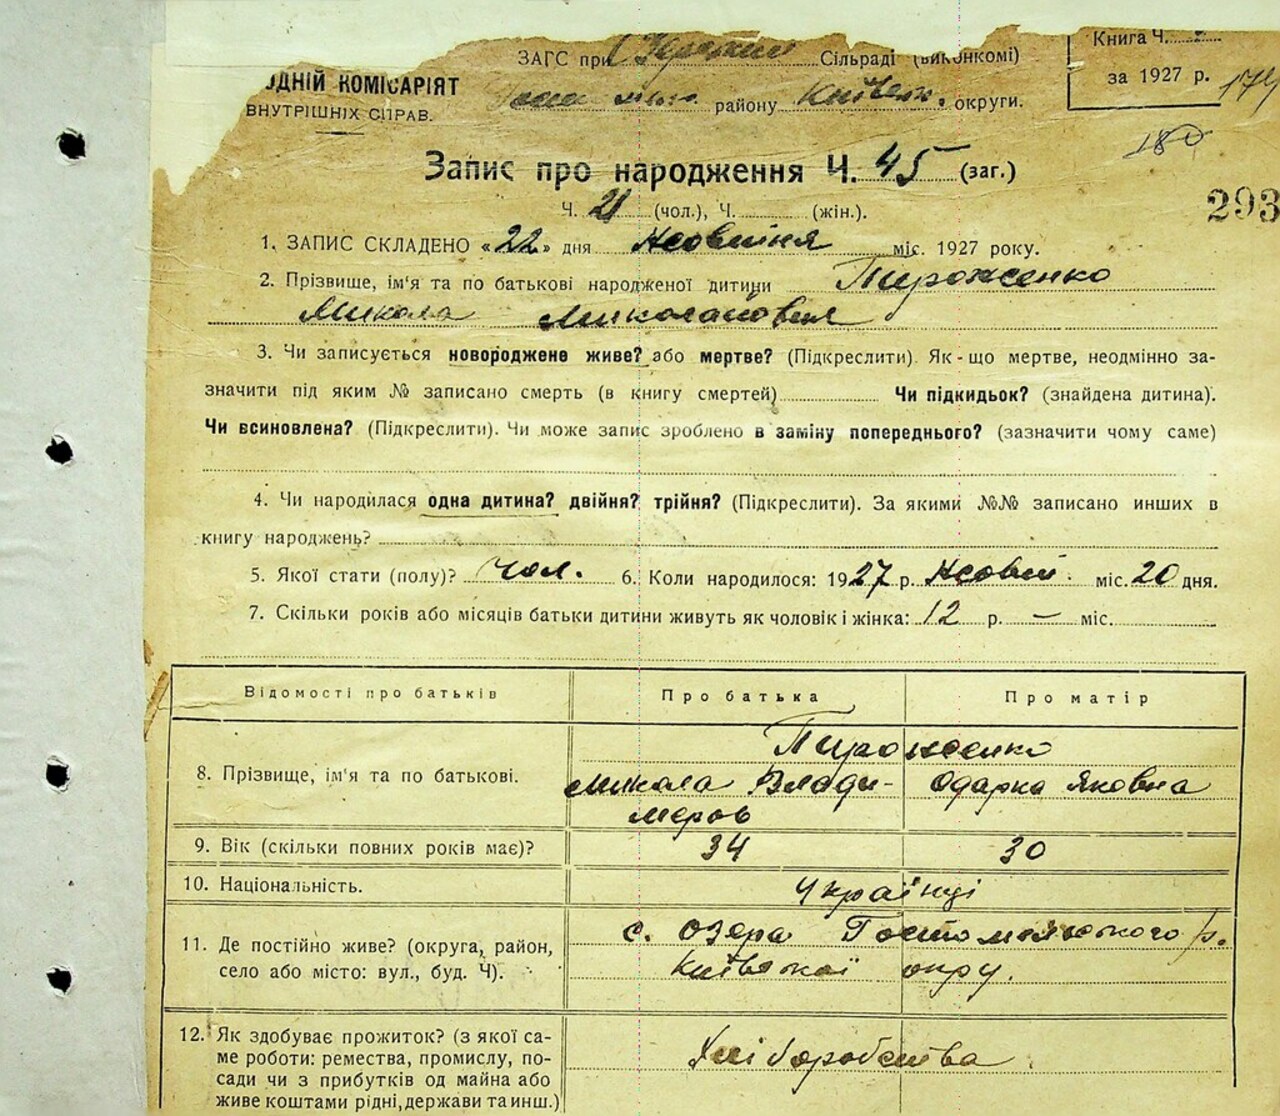 ЗАГС при Сільраді (виконкомі)
Книга Ч.
за 1927 р.
174
ОДНІЙ КОМІСАРІЯТ
ВНУТРІШНІХ СПРАВ.
району Київськ. округи.
180
Запис про народження Ч. 45 (заг.)
293
Ч. 21 (чол.), Ч. (жін.).
1. ЗАПИС СКЛАДЕНО «22» дня Жовтня міс. 1927 року.
2. Прізвище, ім'я та по батькові народженої дитини Пироженко
Микола Миколайович
3. Чи записується новороджене живе? або мертве? (Підкреслити). Як-що мертве, неодмінно за-
значити під яким № записано смерть (в книгу смертей) Чи підкидьок? (знайдена дитина).
Чи всиновлена? (Підкреслити). Чи може запис зроблено в заміну попереднього? (зазначити чому саме)
4. Чи народилася одна дитина? двійня? трійня? (Підкреслити). За якими №№ записано инших в
книгу народжень?
5. Якої стати (полу)? чол. 6. Коли народилося: 1927 р. Жовт. міс. 20 дня.
7. Скільки років або місяців батьки дитини живуть як чоловік і жінка: 12 р. — міс.
Відомості про батьків Про батька Про матір
Пироженко
8. Прізвище, ім'я та по батькові. Микола Влади- Одарка Яковна
меров
9. Вік (скільки повних років має)? 34 30
10. Національність. Українці
11. Де постійно живе? (округа, район,
село або місто: вул., буд. Ч).
с. Озера Гостомельського р.
Київської окру.
12. Як здобуває прожиток? (з якої са-
ме роботи: ремества, промислу, по-
сади чи з прибутків од майна або
живе коштами рідні, держави та инш.)
Хліборобства